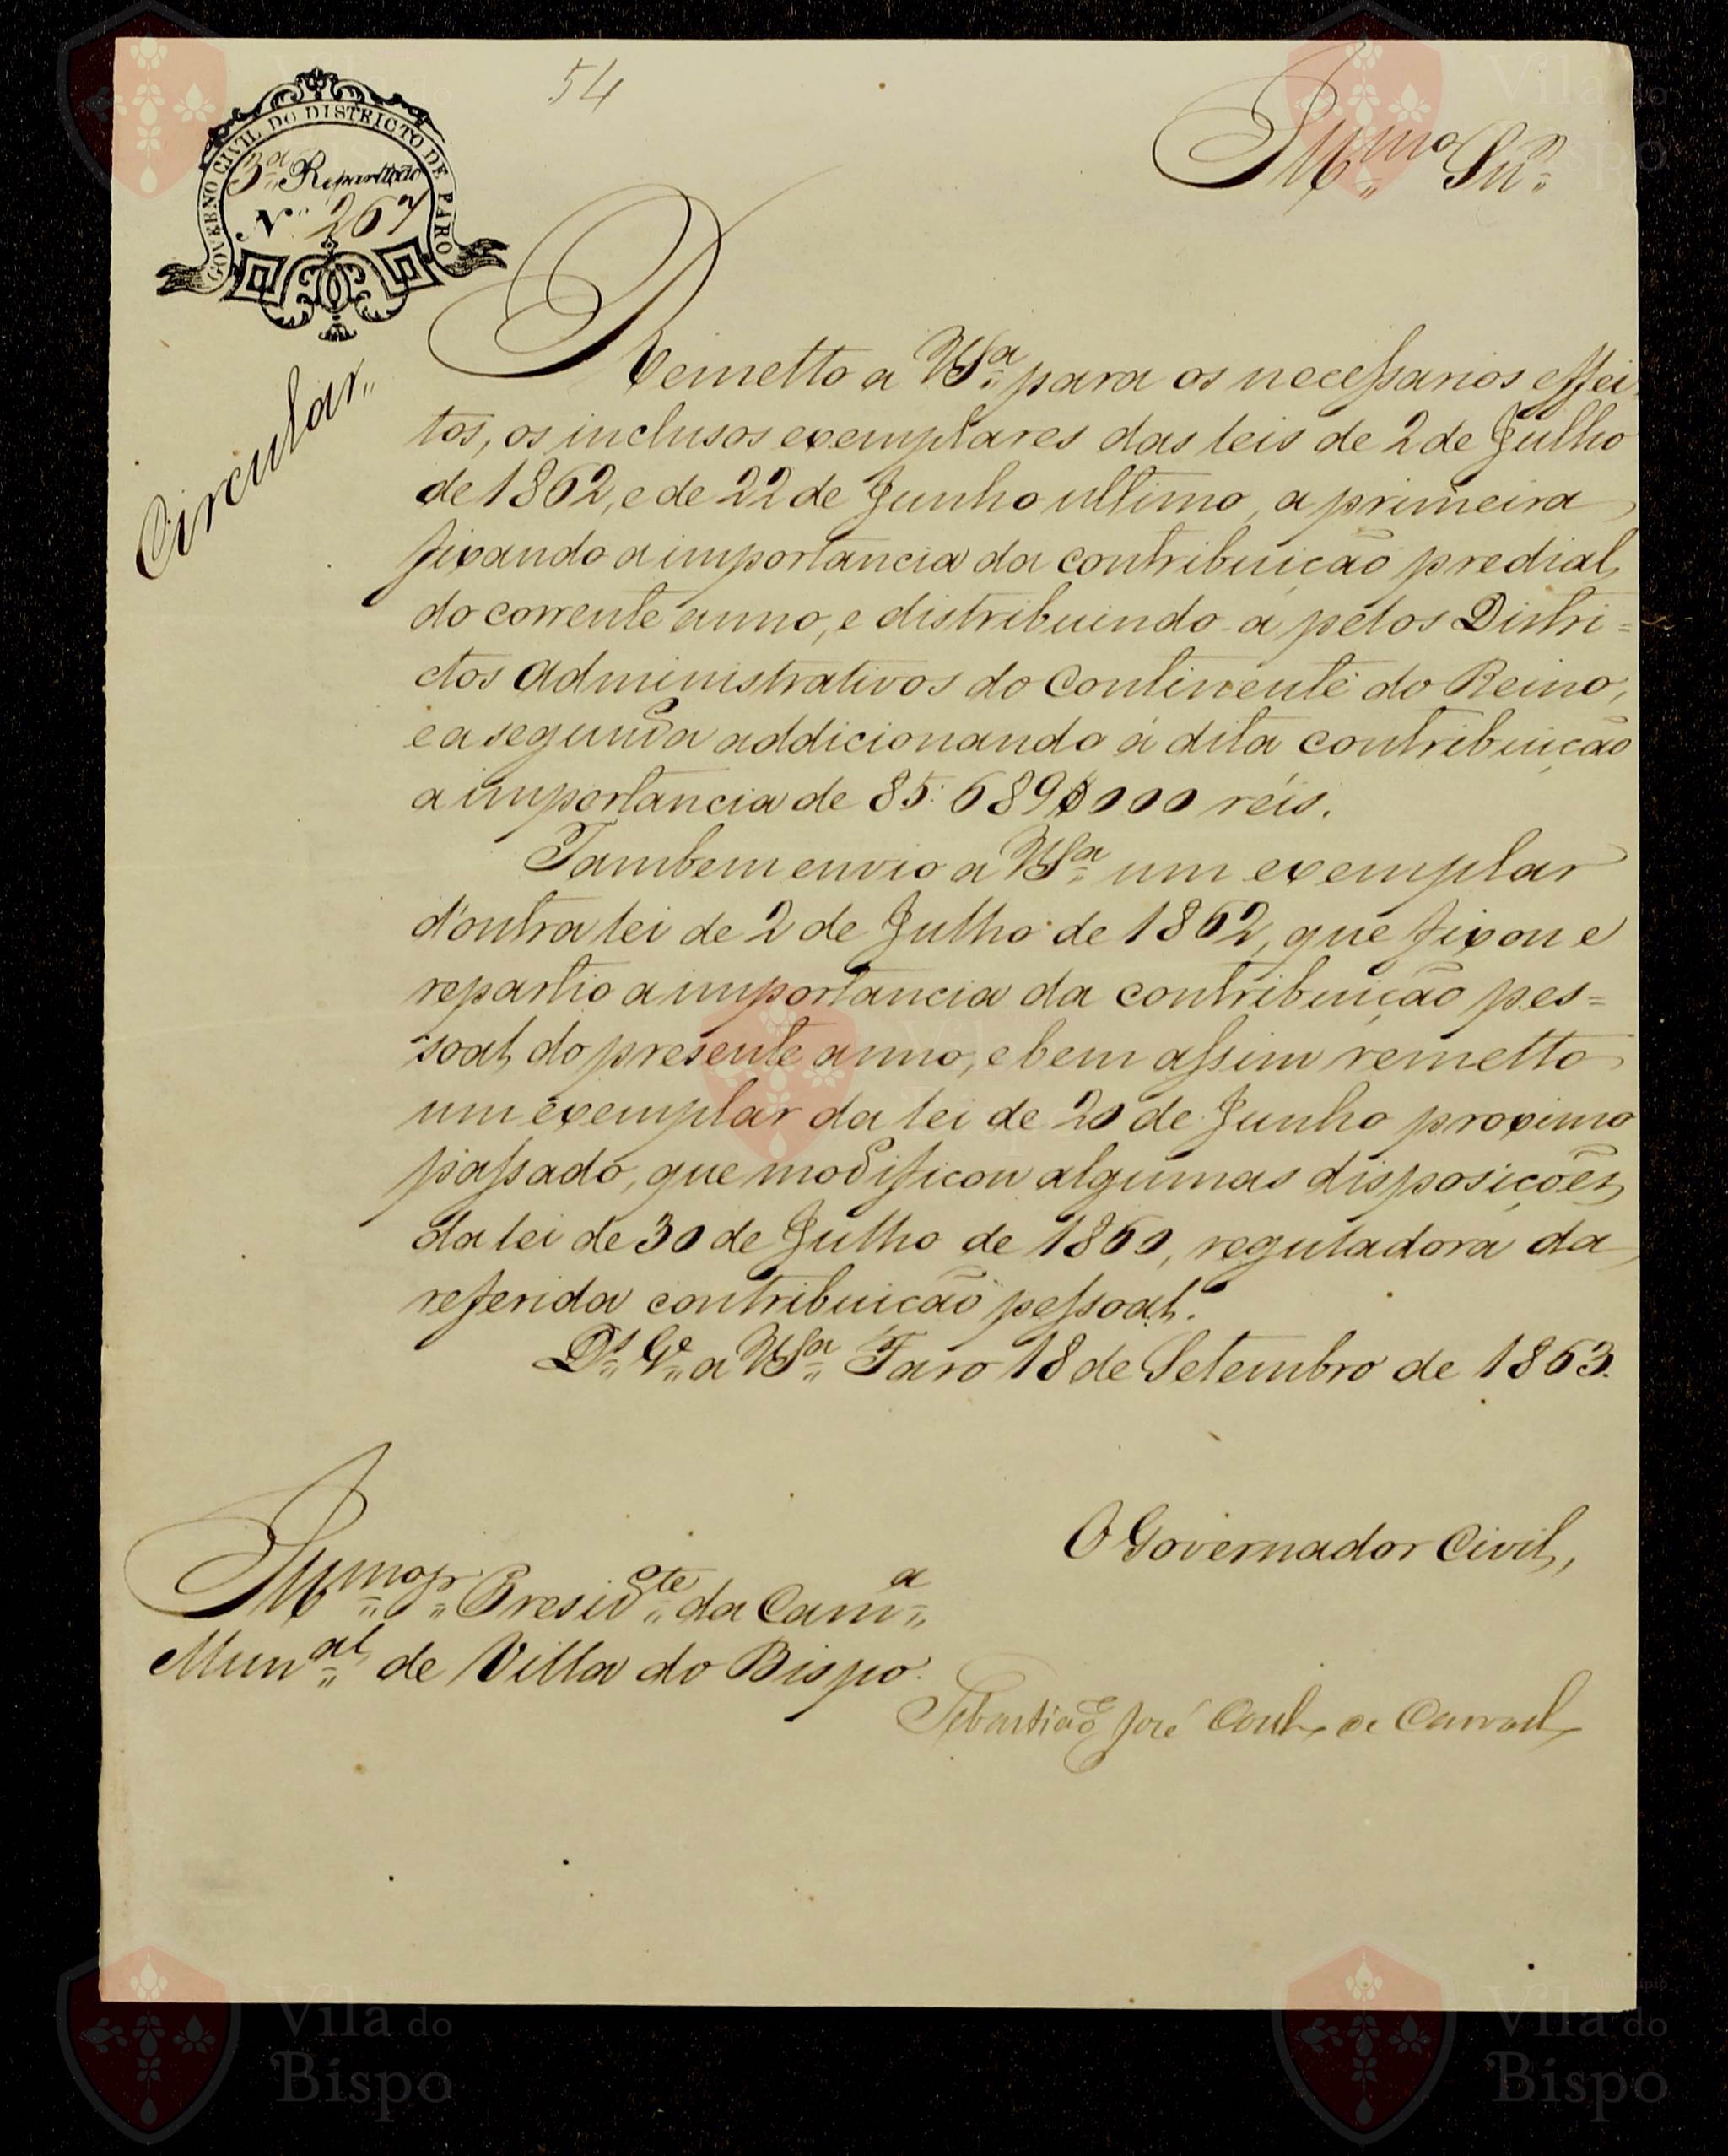 54
GOVERNO CIVIL DO DISTRICTO DE FARO
3.ª Repartição
N.º 267
Ill.mo Snr.
Circular
Remetto a VS.ª para os necessarios effei
tos, os inclusos exemplares das leis de 2 de Julho
de 1862, e de 22 de Junho ultimo, a primeira
fixando a importancia da contribuição predial
do corrente anno, e distribuindo-a pelos Distri=
ctos Administrativos do Continente do Reino,
e a segunda addicionando á dita contribuição
a importancia de 85:689$000 réis.
Tambem envio a VS.ª um exemplar
d'outra lei de 2 de Julho de 1862, que fixou e
repartio a importancia da contribuição pes=
soal do presente anno, e bem assim remetto
um exemplar da lei de 20 de Junho proximo
passado, que modificou algumas disposições
da lei de 30 de Julho de 1860, reguladora da
referida contribuição pessoal.
D.s G.e a VS.ª Faro 18 de Setembro de 1863.
O Governador Civil,
Ill.mo Sr. Presid.te da Cam.ª
Mun.al de Villa do Bispo.
Sebastião José de Carvalho
Vila do
Bispo
Vila do
Bispo
Vila do
Bispo